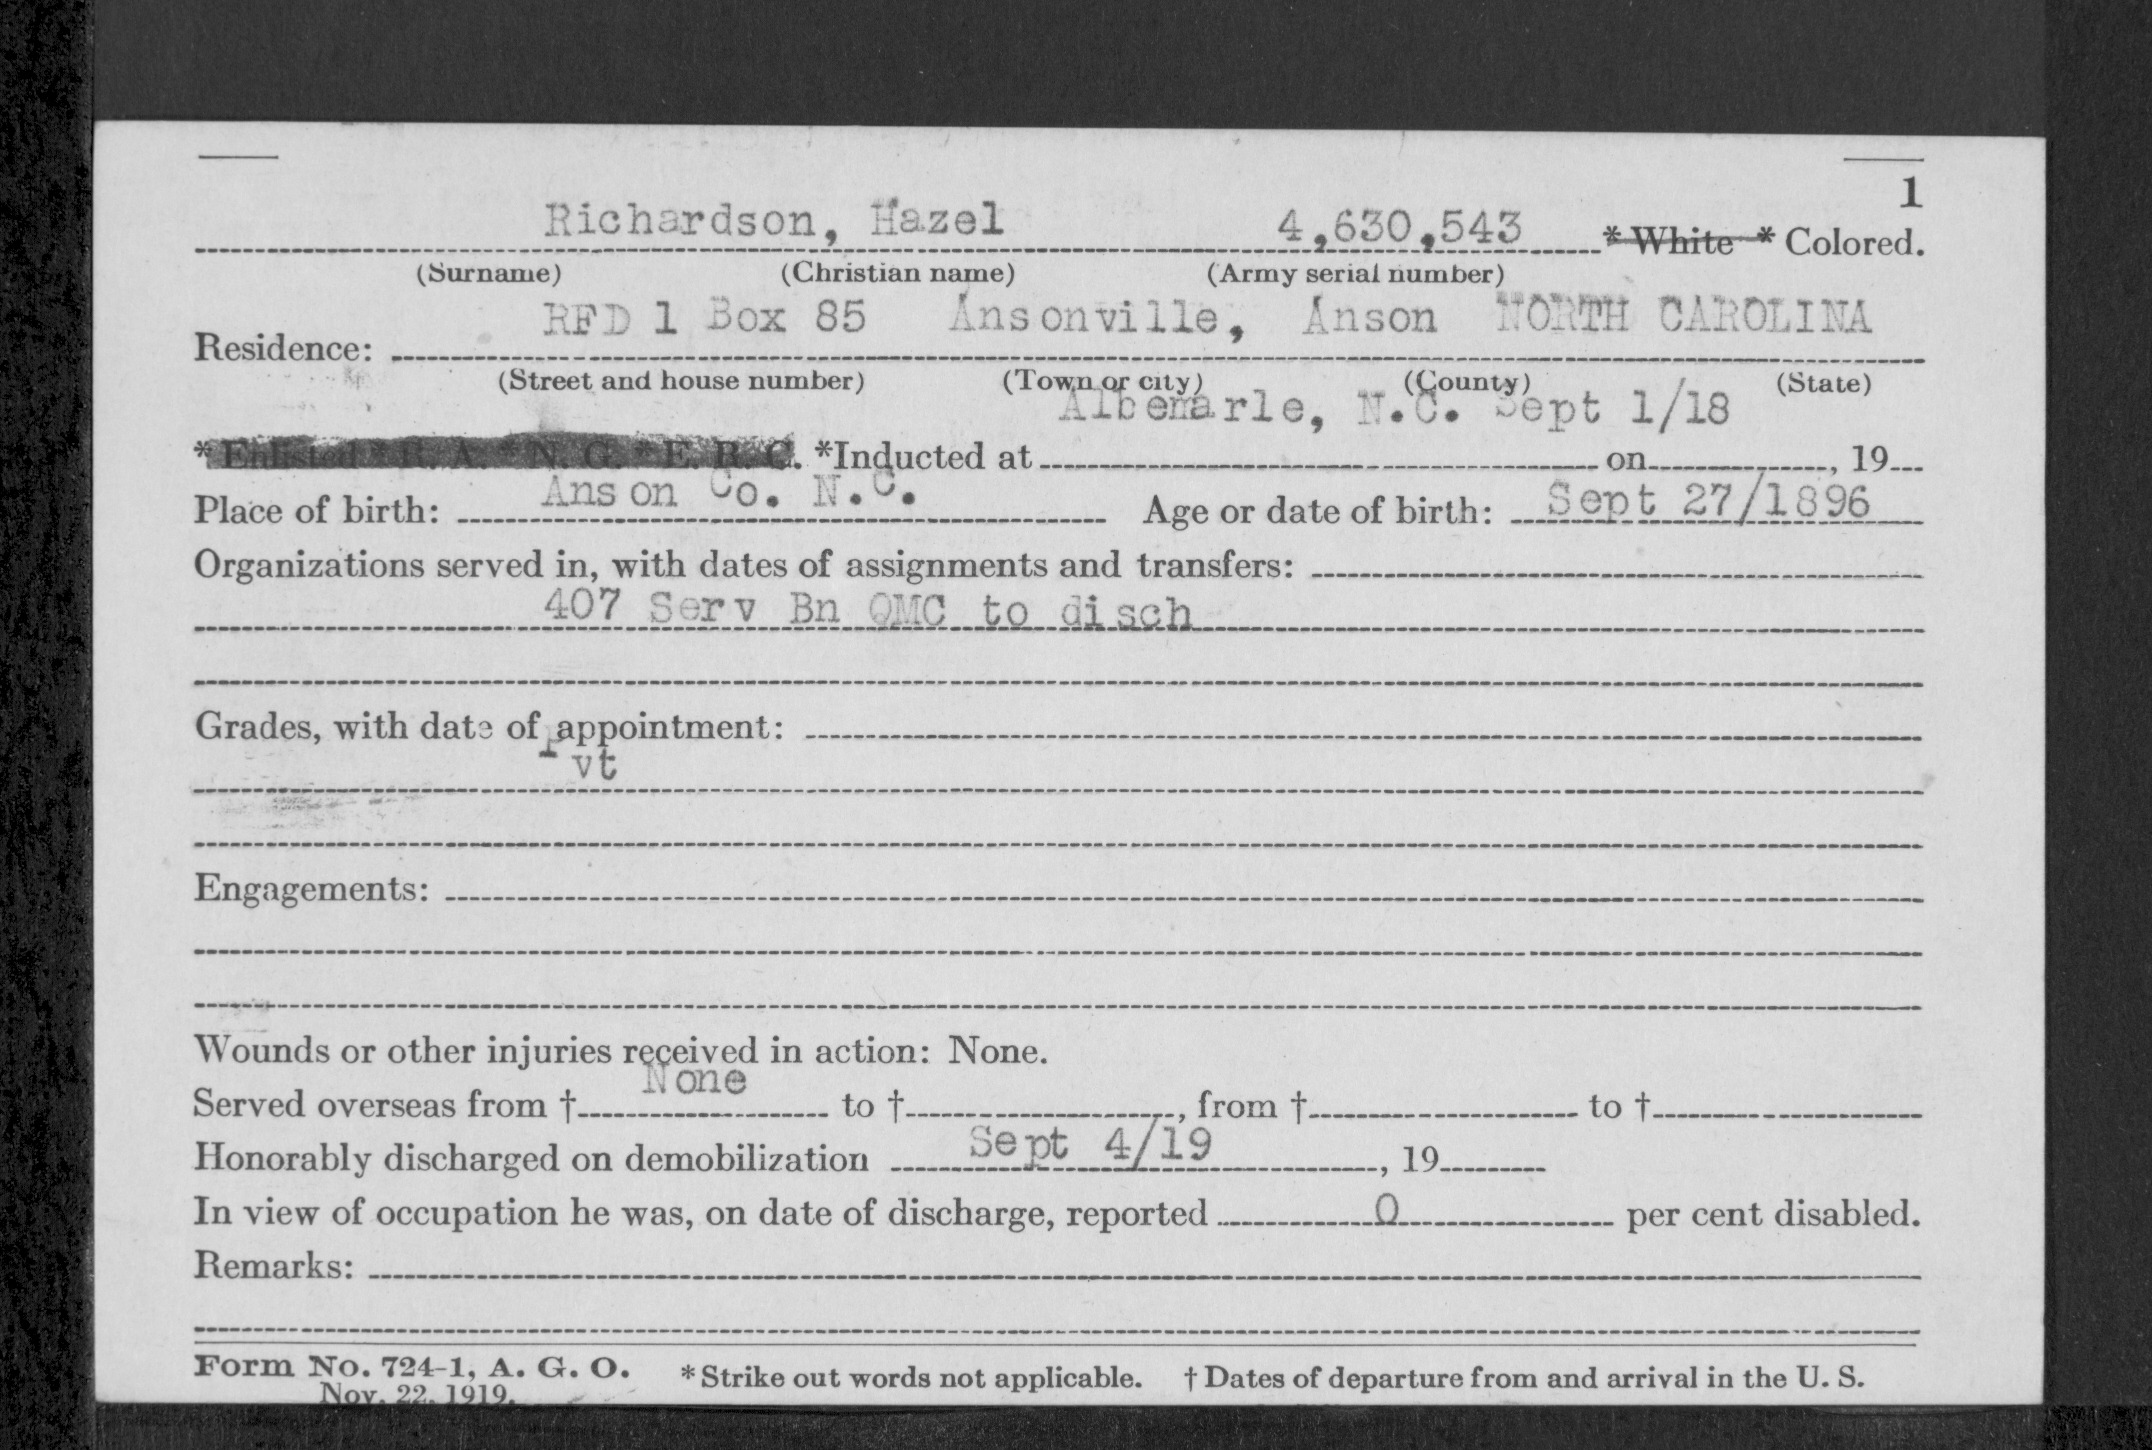 1
Richardson, Hazel 4,630,543 * White * Colored.
(Surname) (Christian name) (Army serial number)
RFD 1 Box 85 Ansonville, Anson NORTH CAROLINA
Residence:
(Street and house number) (Town or city) (County) (State)
Albemarle, N.C. Sept 1/18
* Enlisted * R. A. * N. G. * E. R. C. *Inducted at on , 19
Place of birth: Anson Co. N.C. Age or date of birth: Sept 27/1896
Organizations served in, with dates of assignments and transfers:
407 Serv Bn QMC to disch
Grades, with date of appointment:
Pvt
Engagements:
Wounds or other injuries received in action: None.
None
Served overseas from † to † , from † to †
Honorably discharged on demobilization Sept 4/19 , 19
In view of occupation he was, on date of discharge, reported 0 per cent disabled.
Remarks:
Form No. 724-1, A. G. O. * Strike out words not applicable. † Dates of departure from and arrival in the U. S.
Nov. 22, 1919.